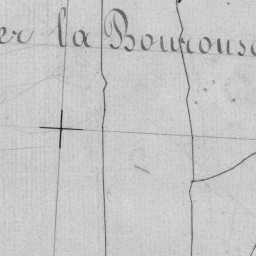 er la Bourouse